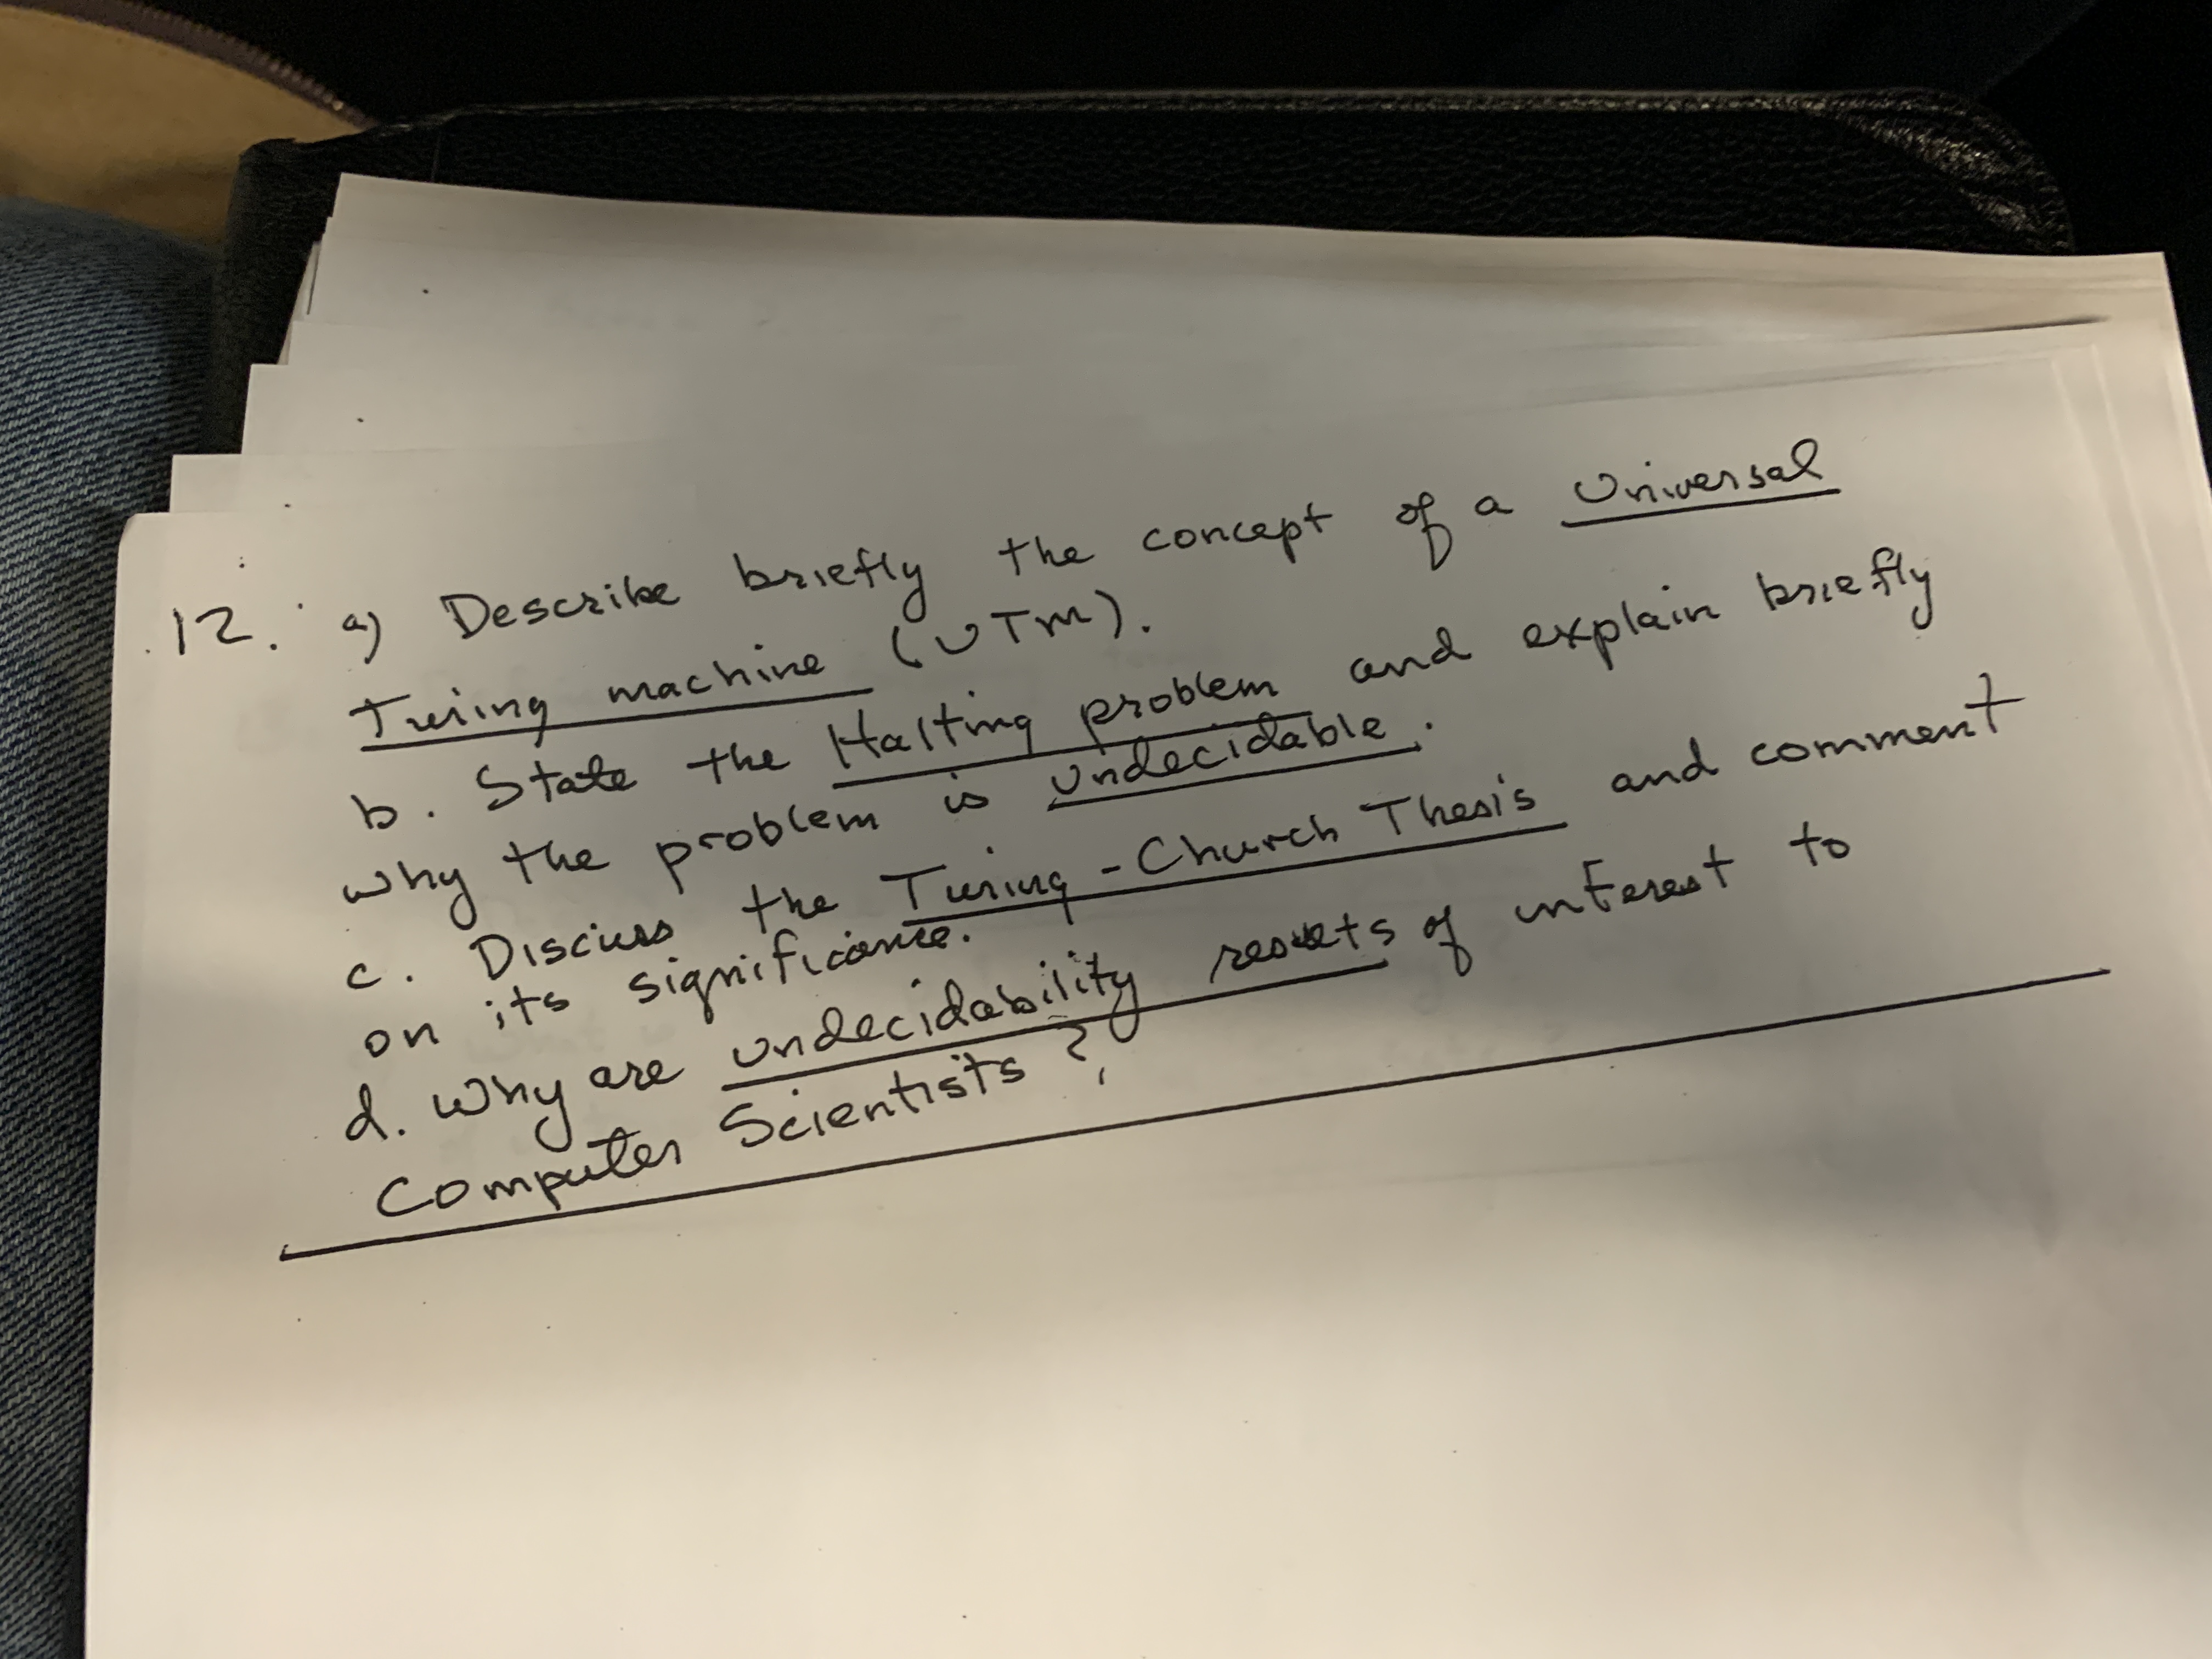 12. a) Describe briefly the concept of a Universal
Turing machine (UTM).
b. State the Halting problem and explain briefly
why the problem is undecidable.
c. Discuss the Turing-Church Thesis and comment
on its significance.
d. Why are undecidability results of interest to
Computer Scientists?